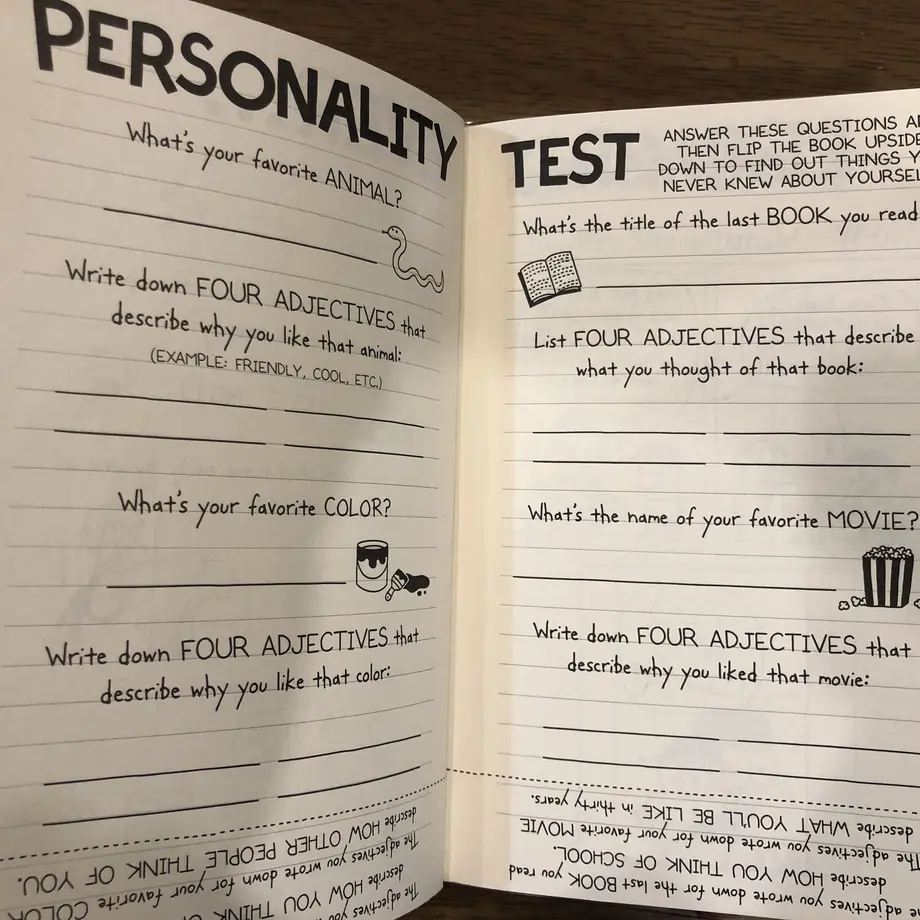 PERSONALITY
What's your favorite ANIMAL?
Write down FOUR ADJECTIVES that
describe why you like that animal:
(EXAMPLE: FRIENDLY, COOL, ETC.)
What's your favorite COLOR?
Write down FOUR ADJECTIVES that
describe why you like that color:
The adjectives you
describe HOW YOU THINK OF
The adjectives you wrote down for your favorite COLOR
describe HOW OTHER PEOPLE THINK OF YOU.
TEST
ANSWER THESE QUESTIONS
THEN FLIP THE BOOK UPSIDE
DOWN TO FIND OUT THINGS
NEVER KNEW ABOUT
What's the title of the last BOOK you read
List FOUR ADJECTIVES that describe
what you thought of that book:
What's the name of your favorite MOVIE?
Write down FOUR ADJECTIVES that
describe why you liked that movie:
The adjectives you wrote down for the last BOOK you read
describe HOW YOU THINK OF SCHOOL.
The adjectives you wrote down for your favorite MOVIE
describe WHAT YOU'LL BE LIKE in thirty years.